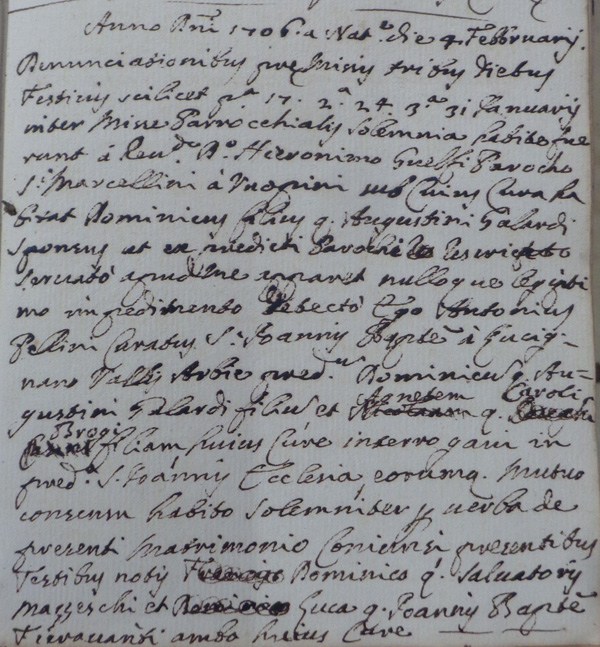 Anno Dni 1706. a Nat.e die 4 Februarij.
Denunciationibus premissis tribus diebus
Festivis scilicet p.a 17. 2.a 24 3.a 31 Januarij
inter Misse Parrocchialis solemnia habite fue
runt á Reu.do D.o Hieronimo Guelfi Parocho
S.i Marcellini á sub Cuius Cura ha
bitat Dominicus filius q. Augustini Galardi
sponsus ut ex predicti Parochi
servató apud me apparet nulloque legipti
mo impedimento detectó Ego Antonius
Pellini Curatus S.i Joannis Bapte á Lucig-
nano Vallis Arbie pred.us Dominicus q. Au-
gustini Galardi filius et Agnetem q. Caroli
Brogi filiam huius Cure interrogavi in
pred.a S. Joannis Ecclesia eorumq. Mutuo
consensu habito solemniter p verba de
presenti Matrimonio Coniunxi presentibus
Testibus notis Dominico q. Salvatoris
Mazzeschi et Luca q. Joannis Bapte
Fieravanti ambo huius Cure